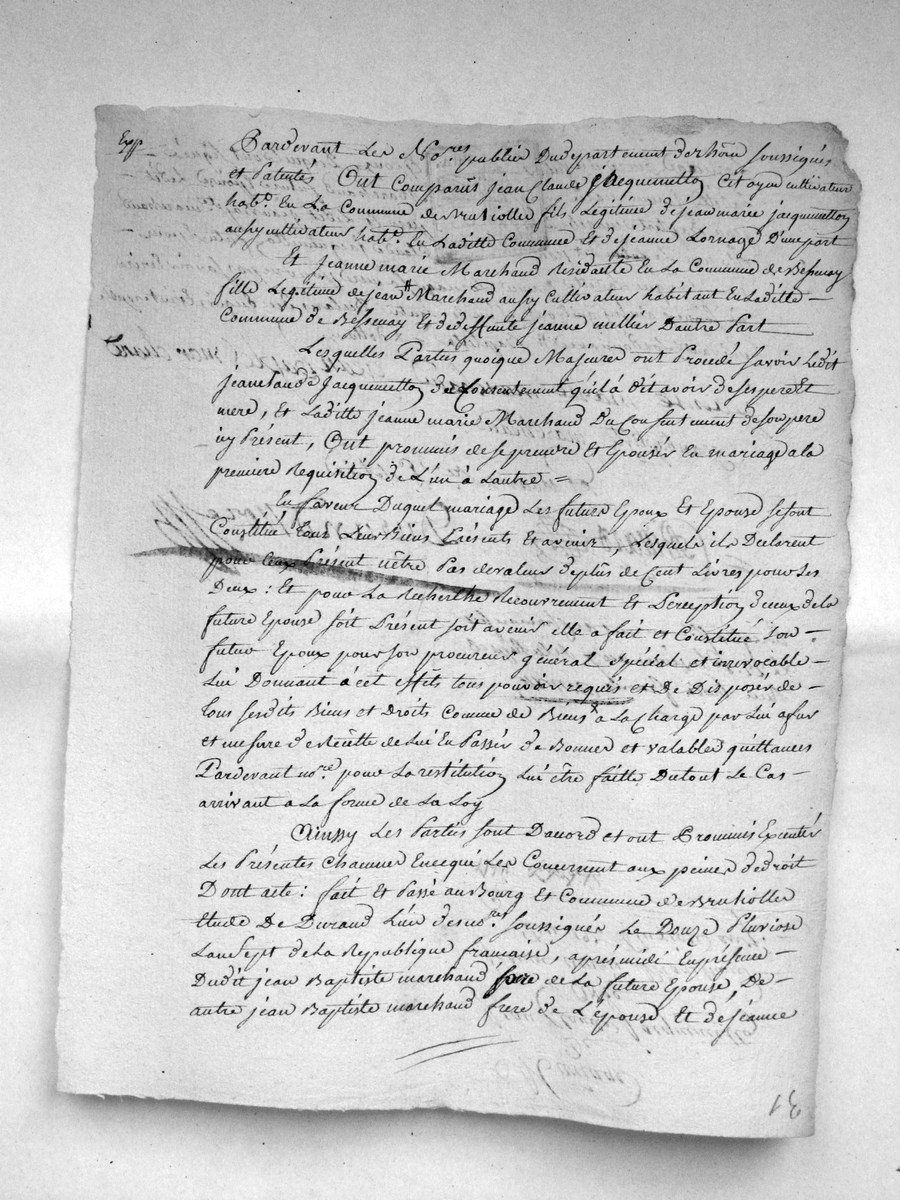 Exp.
Pardevant Les No.res publics Du departement de rhône soussignés
et Patentés Ont Comparus jean Claude jacquemetton Citoyen cultivateur
habt. En La Commune de Brulliolle fils Legitime de jean marie jacquemetton
aussy cultivateur habt. En Laditte Commune Et de jeanne Lornage D'une part
Et jeanne marie Marchand Residante En La Commune de Bessenay
fille Legitime de jean Marchand aussy Cultivateur habitant En Laditte
Commune de Bessenay Et de deffunte jeanne mellier Dautre Part
Lesquelles Parties quoique Majeures ont Procedé savoir Ledit
jean Claude Jacquemetton du Consentement qu'il a dit avoir de ses pere Et
mere, et Laditte jeanne marie Marchand Du Consentement de son pere
icy Présent, Ont promis de se prendre Et Epouser En mariage a la
premiere Requisition de L'un à Lautre =
En faveur Duquel mariage Les futurs Epoux Et Epouse se sont
Constitué tous Leurs Biens Présents Et avenir, Lesquels ils Declarent
pour Ceux Présent n'être Pas de valeur de plus de Cent Livres pour Les
Deux : Et pour La Recherche Recouvrement Et Perception d'iceux de la
future Epouse soit Présent soit avenir Elle a fait et Constitué son
futur Epoux pour son procureur général spécial et irrevocable
Lui Donnant à cet effets tous pouvoir requis et De Disposer de
tous sesdits Biens et Droits Comme de Biens a La Charge par Lui a fur
et mesure de recette de Lui En Passer de Bonnes et valables quittances
Pardevant no.re pour La restitution Lui être faitte Du tout Le Cas
arrivant a La forme de La Loy
Ainssy Les Parties sont Dacord et ont Promis Executer
Les Présentes Chacune En ce qui Les Concernent aux peines de droit
Dont acte : fait Et Passé au Bourg Et Commune de Brulliolles
Etude De Durand L'un des no.res soussignés Le Douze Pluviose
L'an Sept de La Republique française, après midi En présence
Dudit jean Baptiste marchand pere de La future Epouse, De
autre jean Baptiste marchand frere de L'épouse Et de jeanne
31